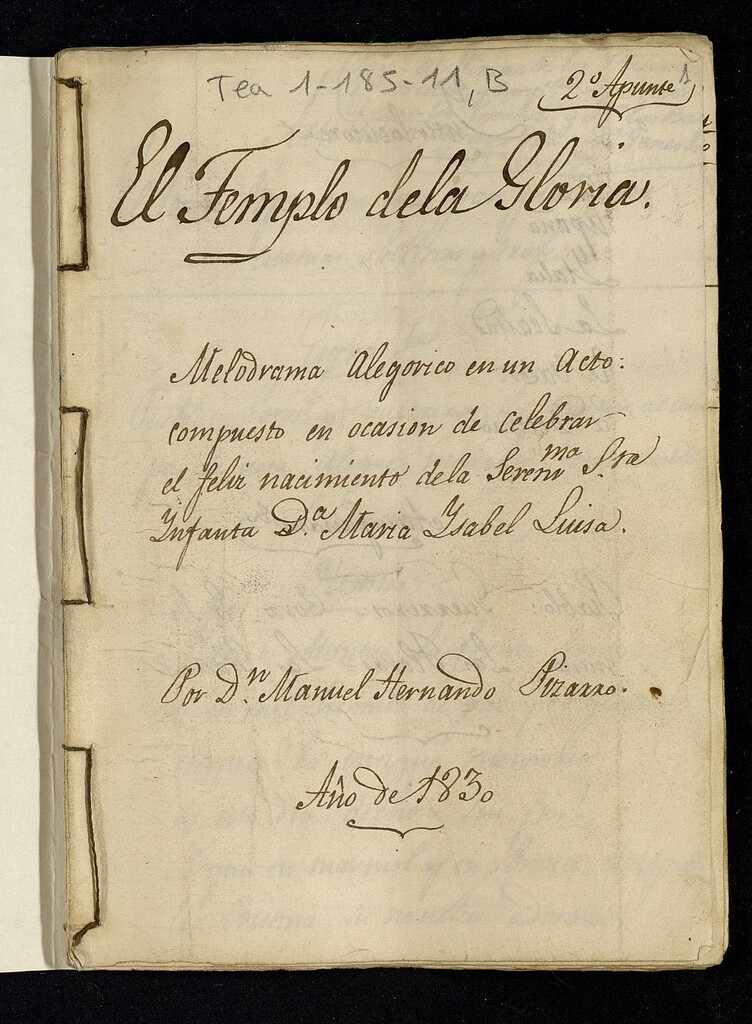 Tea 1-185-11, B
2º Apunte
1
El Templo dela Gloria.
Melodrama Alegorico en un Acto:
compuesto en ocasion de celebrar
el feliz nacimiento dela Serenma Sra
Infanta D.a Maria Ysabel Luisa.
Por D.n Manuel Hernando Pizarro.
Año de 1830